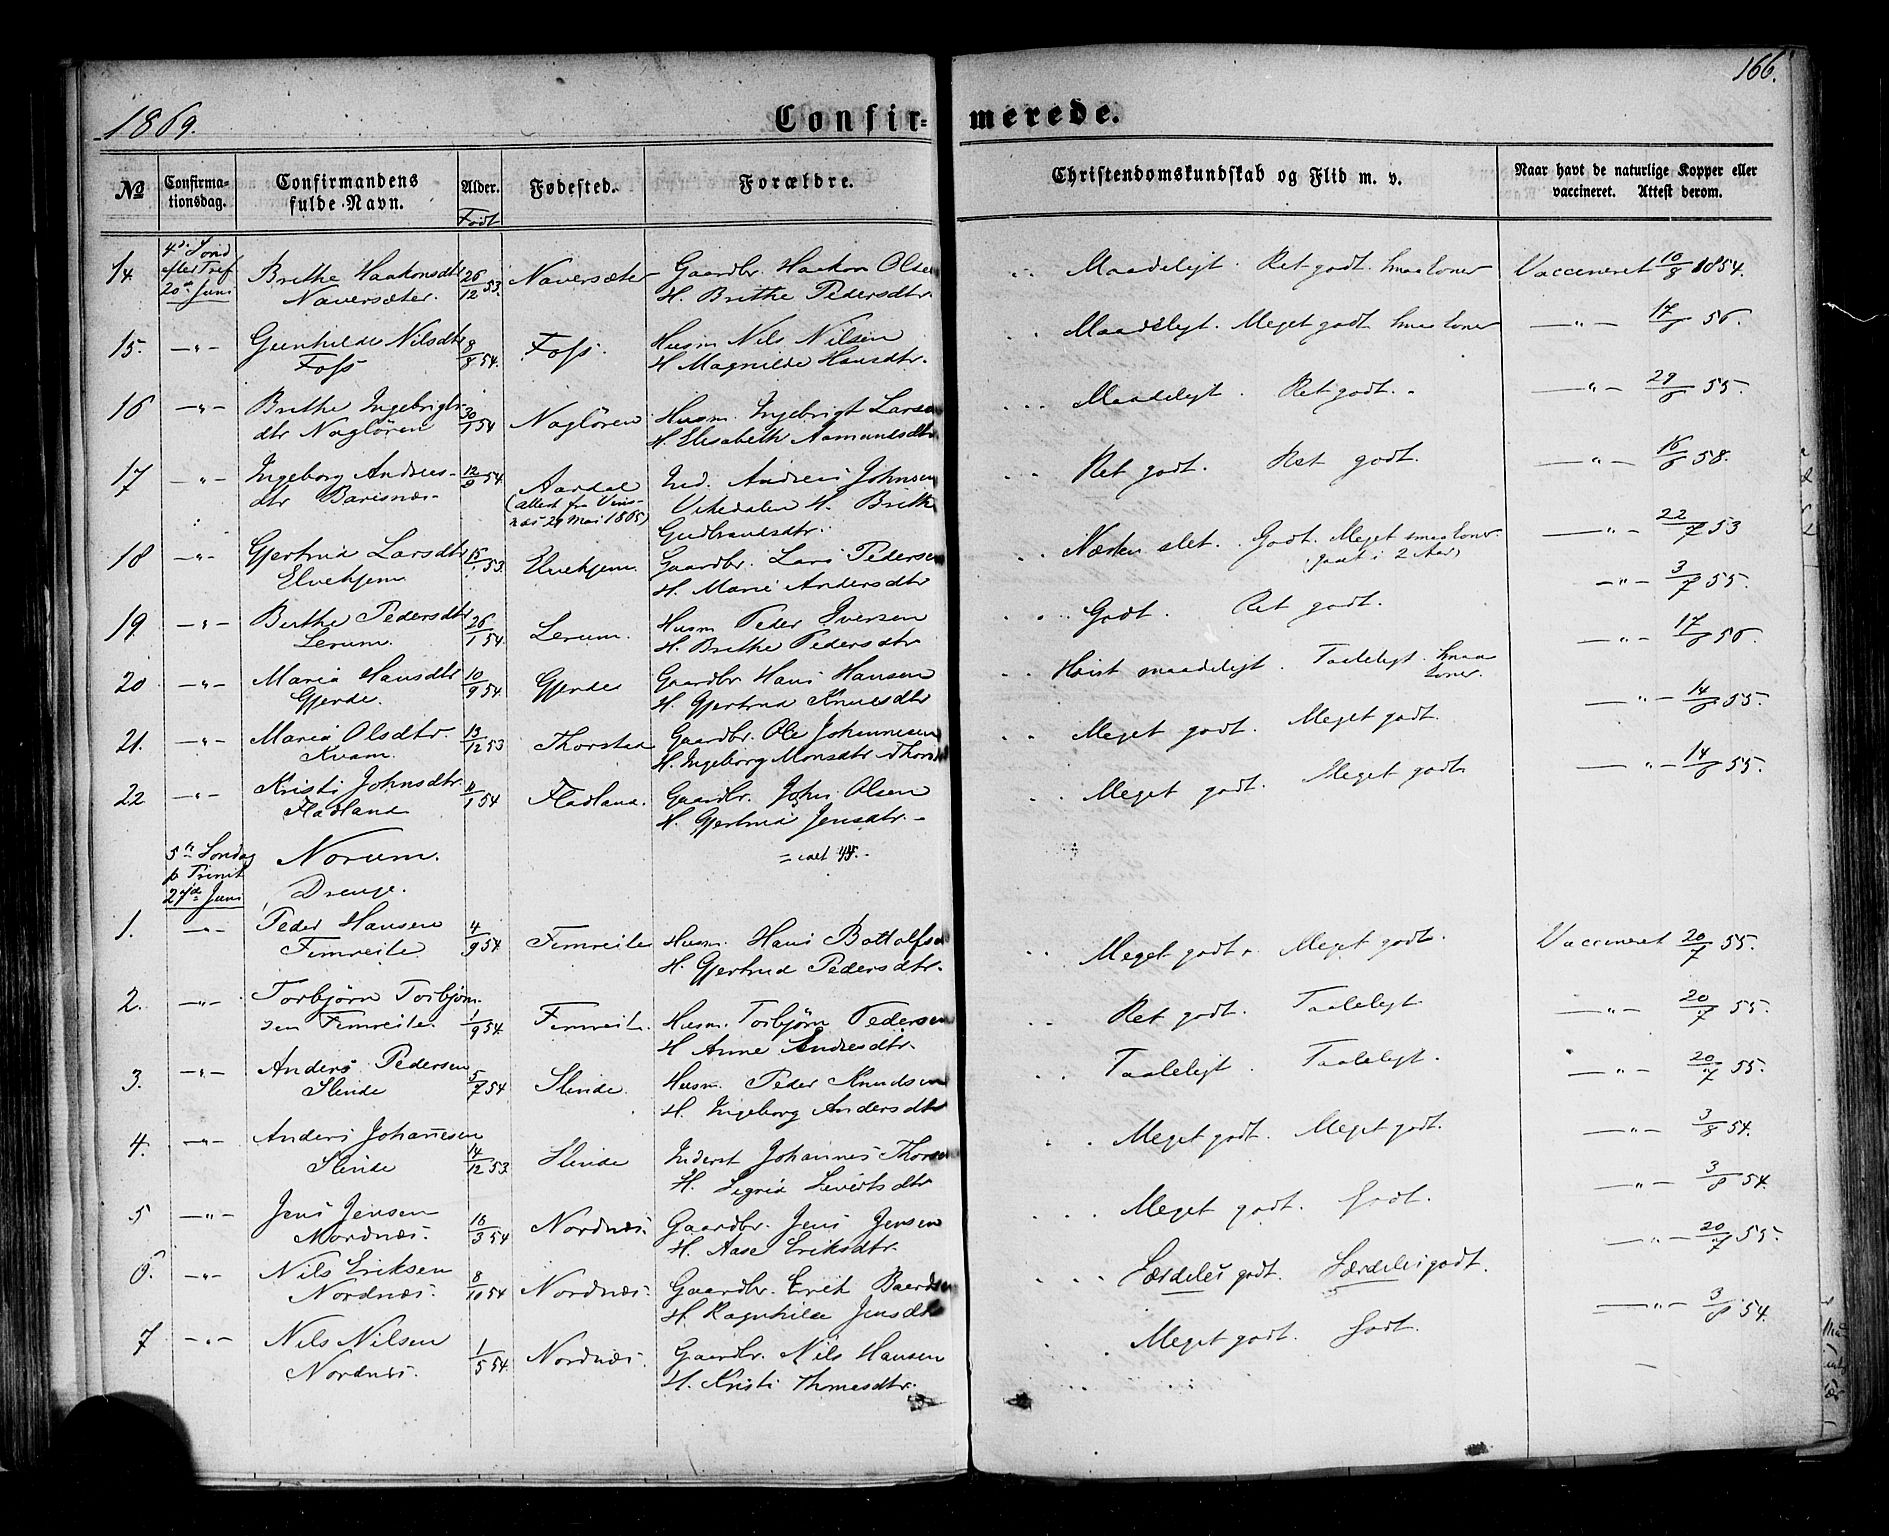 166.
1869.
Confirmerede.
No
Confirmationsdag.
Confirmandens fulde Navn.
Alder.
Født
Fødested.
Forældre.
Christendomskundskab og Flid m. v.
Naar havt de naturlige Kopper eller vaccineret. Attest derom.
14. 4de Sønd Brithe Haakonsdtr 26/12 53. Naversæter Gaardbr. Haakon Olsen Maadeligt. Ret godt. Vaccineret 10/8 1854.
efter Tref
20de Juni Naversæter. H. Brithe Pedersdtr.
15. —"— Gunhilde Nilsdtr 8/8 54. Foss. Husm Nils Nilsen Maadeligt. Meget godt —"— 17/6 56.
Foss H. Magnilde Hansdtr.
16 —"— Brithe Ingebrigts- 30/1 54 Nagløren Husm. Ingebrigt Larsen Maadeligt. Ret godt. —"— 29/6 55.
dtr Nagløren H. Elisabeth Aamundsdtr
17 —"— Ingeborg Andreas- 12/9 54. Aardal Ind. Andreis Johnsen Ret godt. Ret godt. —"— 16/6 58.
dtr Barisnæs (attest fra Vins- Vetedalen H. Brithe
næs 29 Mai 1865) Gudbrandsdtr.
18 —"— Gjertrud Larsdtr 15/1 53. Elvehjem Gaardbr. Lars Pedersen Næsten slet. Godt. Meget —"— 22/7 53
Elvehjem H. Marie Andersdtr (gaat i 2 Aar)
19. —"— Berthe Pedersdtr 26/1 54. Lerum. Husm Peder Iversen Godt. Ret godt. —"— 3/7 55.
Lerum. H. Brithe Pedersdtr
20 —"— Maria Hansdtr 10/9 54. Gjerde Gaardbr Hans Hansen Høist maadeligt. Taaleligt. —"— 17/6 56.
Gjerde. H. Gjertrud Knudsdtr
21. —"— Maria Olsdtr. 13/12 53 Thorstad Gaardbr. Ole Johannesen Meget godt. Meget godt. —"— 14/6 55.
Kvam. H. Ingeborg Monsdtr
22 —"— Kristi Johnsdtr. 11/1 54 Fladland. Gaardbr. John Olsen Meget godt. Meget godt —"— 14/6 55.
Fladland H. Gjertrud Jensdtr.
5te Søndag Norum. = ialt 44.
p Trinit
27de Juni Drenge.
1. —"— Peder Hansen 4/9 54. Fimreite Husm. Hans Bottolfsen Meget godt. Meget godt. Vaccineret 20/7 55.
Fimreite H. Gjertrud Pedersdtr.
2. —"— Torbjørn Torbjørn- 1/9 54. Fimreite. Husm. Torbjørn Pedersen Ret godt. Taaleligt. —"— 20/7 55.
sen Fimreite. H Anne Andresdtr.
3. —"— Anders Pedersen 5/7 54. Slinde. Husm. Peder Knudsen Taaleligt. Taaleligt. —"— 20/7 55.
Slinde H. Ingeborg Andersdtr
4. —"— Anders Johannesen 14/12 53. Slinde Inderst Johannes Thorsen Meget godt. Meget godt. —"— 3/8 54.
Slinde H. Sigrid Sivertsdtr
5 —"— Jens Jensen 16/3 54 Nordnæs. Gaardbr. Jens Jensen Meget godt. Godt. —"— 3/8 54.
Nordnæs. H. Aase Eriksdtr.
6. —"— Nils Eriksen 8/10 54 Nordnæs. Gaardbr. Erik Baardsen Særdeles godt. Særdeles godt. —"— 20/7 55.
Nordnæs. H. Ragnhilde Jensdtr
7 —"— Nils Nilsen 1/5 54. Nordnæs. Gaardbr. Nils Hansen Meget godt. Godt. —"— 3/8 54.
Nordnæs. H. Kristi Thomasdtr.